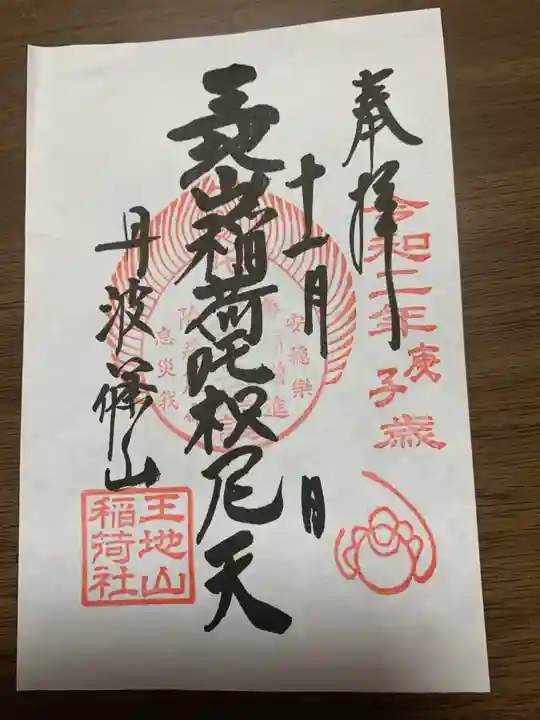 奉拝
令和二年庚子歳
十一月 日
王地山稲荷吒枳尼天
安穏樂
息災我
丹波篠山
王地山
稲荷社